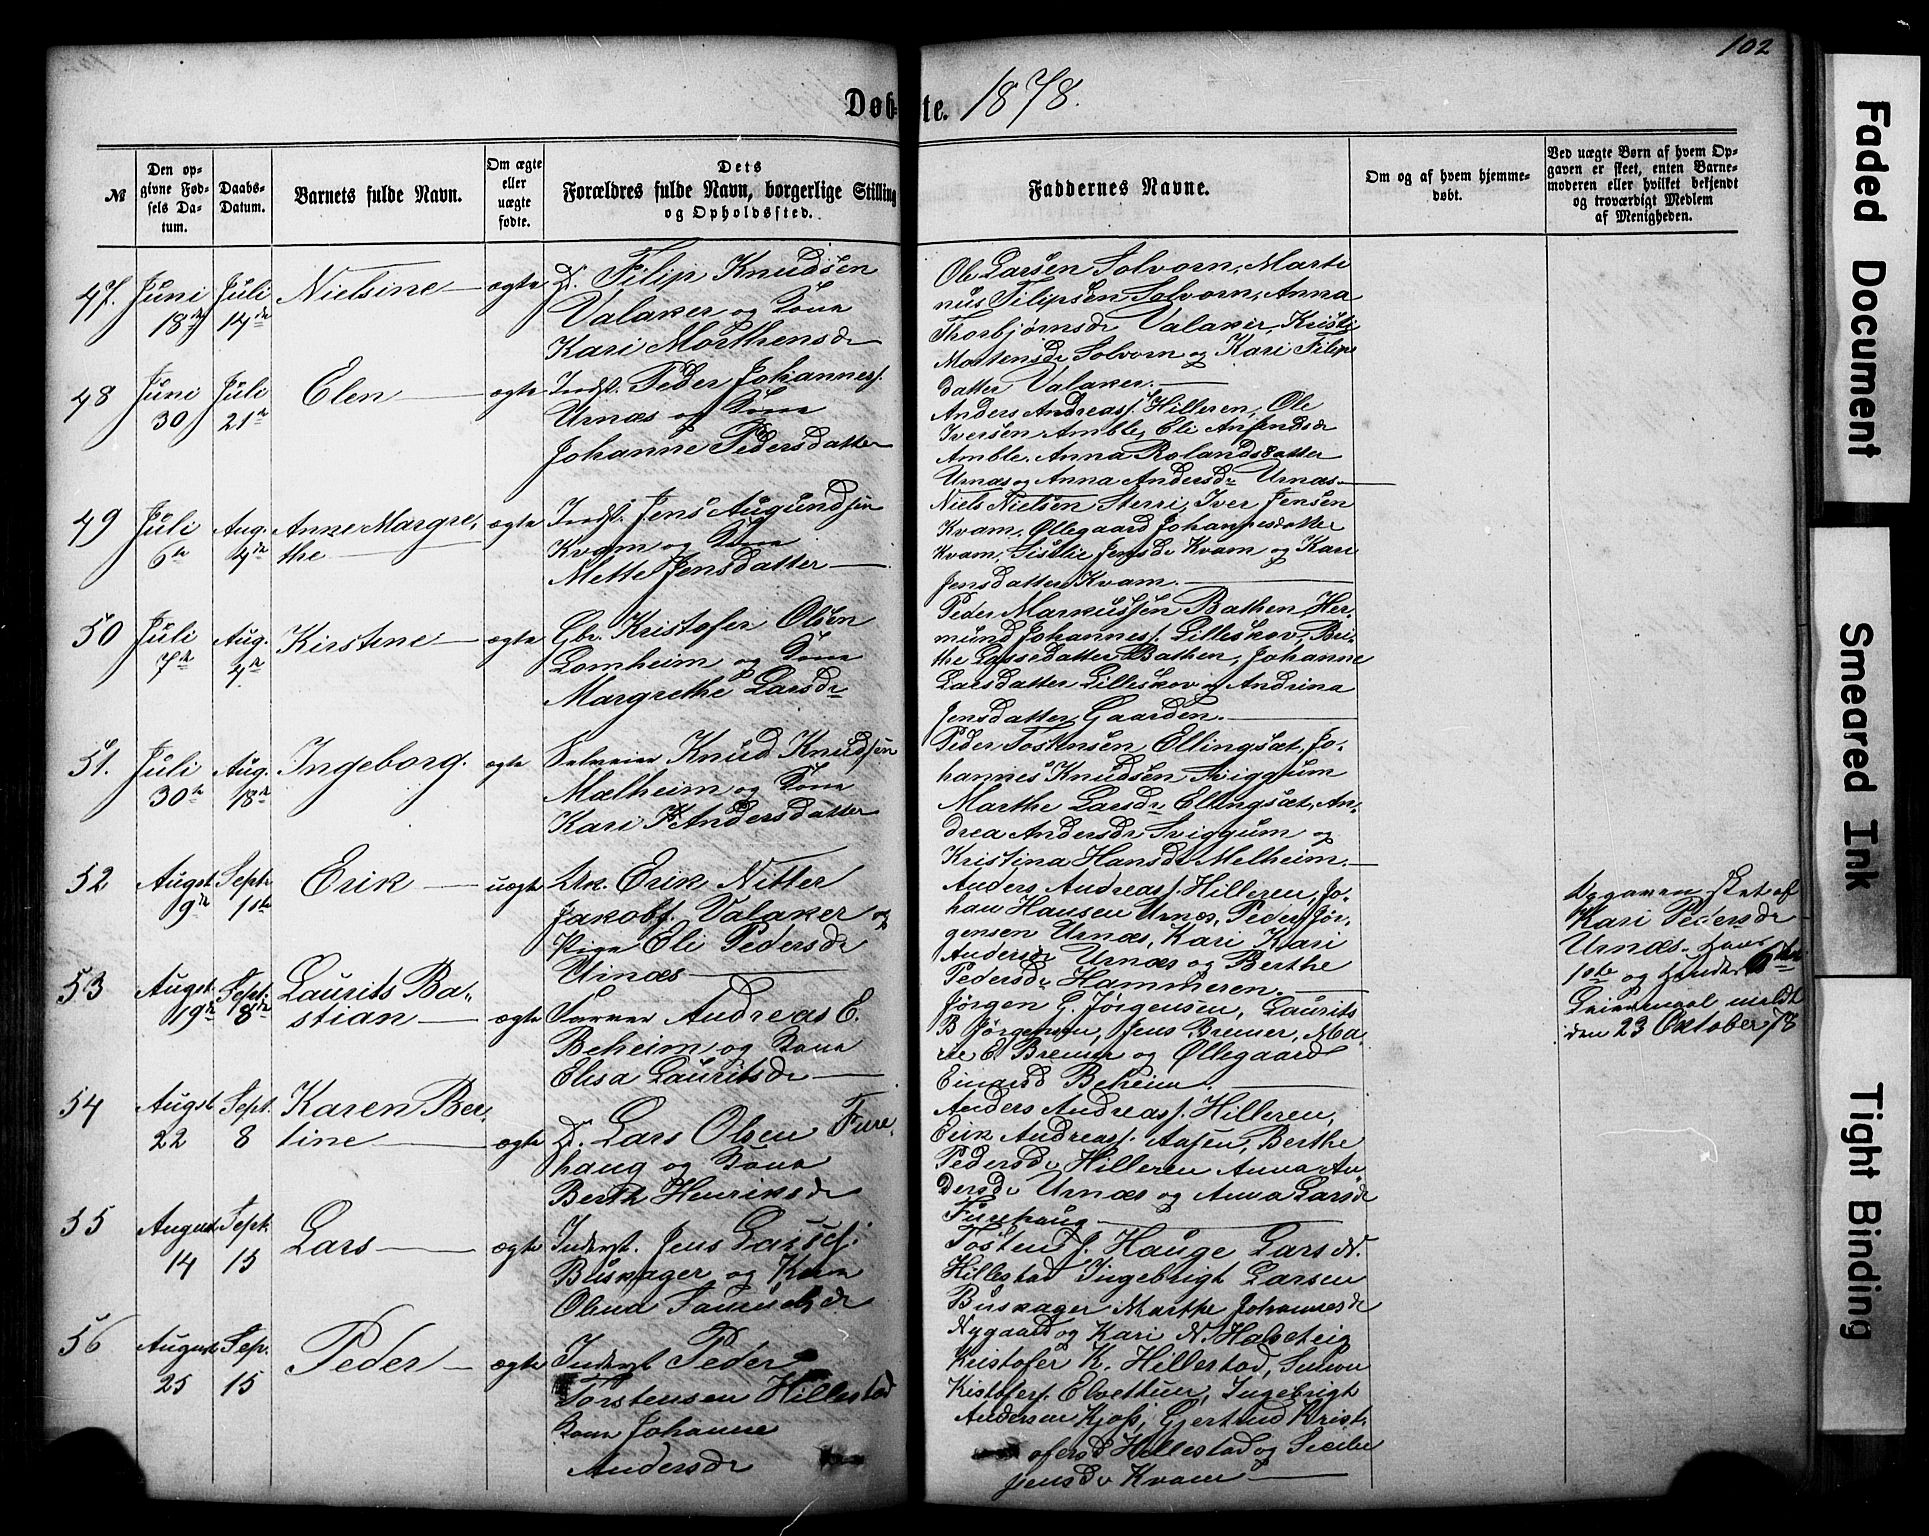 102
Døbte. 1878.
№
Den opgivne Fødsels Datum.
Daabs-Datum.
Barnets fulde Navn.
Om ægte eller uægte fødte.
Dets Forældres fulde Navn, borgerlige Stilling og Opholdssted.
Faddernes Navne.
Om og af hvem hjemmedøbt.
Ved uægte Børn af hvem Opgaven er skeet, enten Barnemoderen eller hvilket bekjendt og troværdigt Medlem af Menigheden.
47. Juni 18de Juli 14de Nielsine ægte D. Filip Knudsen
Valaker og Kona
Kari Morthensdr
Ole Larsen Solvorn, Marti
nus Filipsen Solvorn, Anna
Thorbjørnsdr Valaker, Kristi
Mortensdr Solvorn og Kari Filips
datter Valaker.
48 Juni 30 Juli 21de Elen ægte Indst. Peder Johannes.
Urnæs og Kona
Johanne Pedersdatter
Anders Andreas. Hilleren, Ole
Iversen Amble, Eli Anfindsdr
Amble. Anna Rolandsdatter
Urnæs og Anna Andersdr Urnæs
49 Juli 6te Aug. 4de Anne Margre,
the ægte Indst. Jens Augundsen
Kvam og Kona
Mette Jensdatter
Niels Nielsen Sterri, Iver Jensen
Kvam, Øllegaard Johannesdatter
Kvam, Siselie Jensdr Kvam og Kari
Jensdatter Kvam.
50 Juli 7de Aug. 4de Kirstine ægte Gbr. Kristofer Olsen
Lomheim og Kona
Margrethe Larsdr
Peder Markussen Bathen, Her-
mund Johannes. Lilleskov, Bri-
the Lassedatter Bathen, Johanne
Larsdatter Lilleskov og Andrina
Jensdatter Gaarden.
51. Juli 30te Aug. 18de Ingeborg. ægte Selveier Knud Knudsen
Mælheim og Kona
Kari K Andersdatter
Peder Tostensen Ellingsæt, Jo-
hannes Knudsen Sviggum
Marthe Larsdr Ellingsæt, An-
drea Andersdr Sviggum og
Kristina Hansdr Melheim.
52 Augst. 9de Septr. 1ste Erik uægte Unk. Erik Nitter
Jakobs. Valaker og
Pige Eli Pedersdr
Urnæs
Anders Andreas. Hilleren, Jo-
han Hansen Urnæs, Peder Jør-
gensen Urnæs, Kari Kari
Andersdr Urnæs og Berthe
Pedersdr Hammeren.
Opgaven sket af
Kari Pedersdr
Urnæs. Hans
1ste og hendes 6te
Leiermaal meldt
den 23 Oktober 78
53 Augst. 19de Sept. 8de Laurits Ba-
stian ægte Andreas E.
Beheim og Kona
Elisa Lauritsdr
Jørgen G. Jørgensen, Laurits
B Jørgensen, Jens Bremer, Ma-
rte E Bremer og Øllegaard
Einarsd Beheim.
54 Augst. 22 Sept. 8 Karen Ber-
tine ægte D. Lars Olsen Fure,
haug og Kona
Berth Henriksdr
Anders Andreas. Hilleren,
Erik Andreas. Aasen, Berthe
Pedersdr Hilleren Anna An
dersdr Urnæs og Anna Larsdr
Furehaug
55 August 14 Sept. 15 Lars ægte Inderst. Jens Lassesf.
Buskager og Kona
Olena Samuelsdr
Tosten J. Hauge Lars N.
Hillestad Ingebrigt Larsen
Buskager Marthe Johannesdr
Nygaard og Kari N. Halsteig
56 August 25 Sep. 15 Peder ægte Inderst Peder
Torstensen Hillestad
Kona Johanne
Andersdr
Kristofer K. Hillestad, Simon
Kristofers. Elvettun, Ingebrigt
Andersen Kjøs, Gjertrud Krist-
ofersd Hillestad og Siselie
Jensdr Kvam
Faded Document
Smeared Ink
Tight Binding